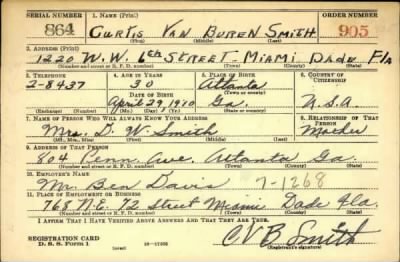 SERIAL NUMBER 1. NAME (Print) ORDER NUMBER
864 CURTIS VAN BUREN SMITH 905
(First) (Middle) (Last)
2. ADDRESS (Print)
1220 N.W. 1th STREET MIAMI DADE FLA
(Number and street or R. F. D. number) (Town) (County) (State)
3. TELEPHONE 4. AGE IN YEARS 5. PLACE OF BIRTH 6. COUNTRY OF CITIZENSHIP
2-8437 30 Atlanta
DATE OF BIRTH (Town or county)
April 29, 1910 Ga. U.S.A.
(Exchange) (Number) (Mo.) (Day) (Yr.) (State or country)
7. NAME OF PERSON WHO WILL ALWAYS KNOW YOUR ADDRESS 8. RELATIONSHIP OF THAT PERSON
Mrs. D. W. Smith Mother
(Mr., Mrs., Miss) (First) (Middle) (Last)
9. ADDRESS OF THAT PERSON
804 Penn Ave. Atlanta Ga.
(Number and street or R. F. D. number) (Town) (County) (State)
10. EMPLOYER'S NAME
Mr. Davis 7-1268
11. PLACE OF EMPLOYMENT OR BUSINESS
768 N.E. 72 Street Miami Dade Fla.
(Number and street or R. F. D. number) (Town) (County) (State)
I AFFIRM THAT I HAVE VERIFIED ABOVE ANSWERS AND THAT THEY ARE TRUE.
REGISTRATION CARD
D. S. S. Form 1 (over) C V B Smith